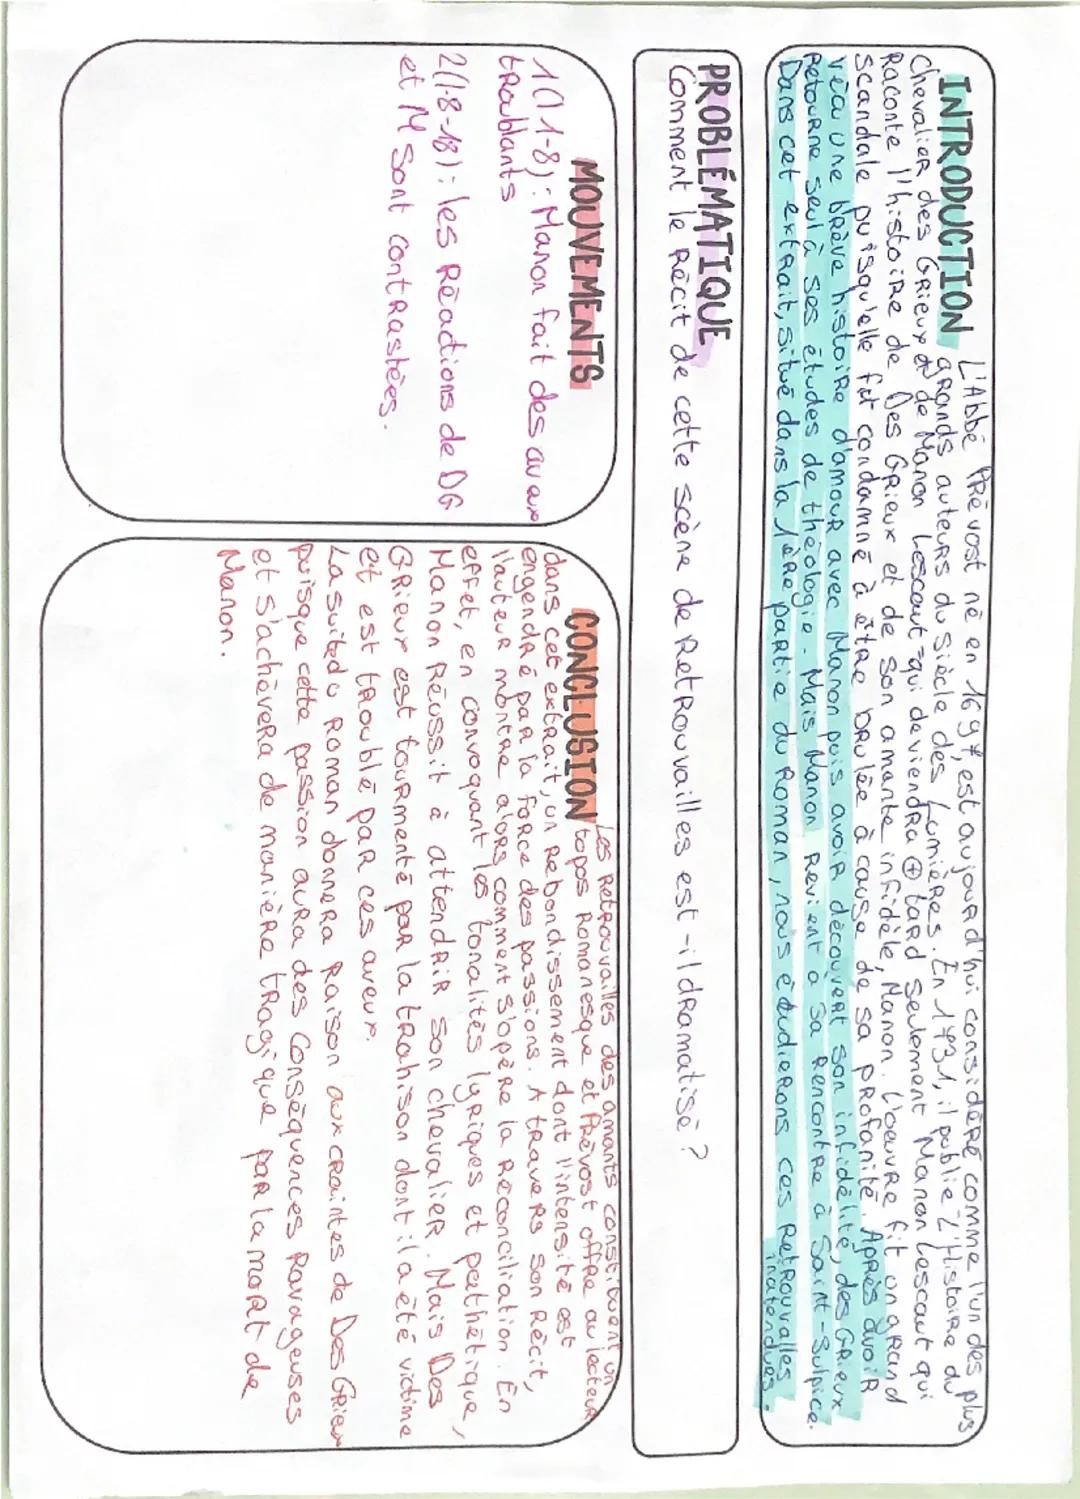 INTRODUCTION L'Abbé Prévost né en 1697, est aujourd'hui considéré comme l'un des plus
grands auteurs du siècle des Lumières. En 1731, il publie L'Histoire du
Chevalier des Grieux et de Manon Lescaut qui deviendra ⊕ tard seulement Manon Lescaut qui
raconte l'histoire de Des Grieux et de son amante infidèle, Manon. L'oeuvre fit un grand
scandale puisqu'elle fut condamné à être brulée à cause de sa profanité. Après avoir
vécu une brève histoire d'amour avec Manon puis avoir découvert son infidélité, des Grieux
retourne seul à ses études de théologie. Mais Manon revient à sa rencontre à Saint-Sulpice.
Dans cet extrait, situé dans la 1ère partie du roman, nous étudierons ces retrouvalles
inatendues.
PROBLÉMATIQUE
Comment le récit de cette scène de retrouvailles est-il dramatisé?
MOUVEMENTS
1(l 1-8): Manon fait des aveux
troublants
2(l-8-18): les réactions de DG
et M sont contrastées.
CONCLUSION Les retrouvailles des amants constituent un
topos romanesque et Prévost offre au lecteur
dans cet extrait, un rebondissement dont l'intensité est
engendré par la force des passions. A travers son récit,
l'auteur montre alors comment s'opère la réconciliation. En
effet, en convoquant les tonalités lyriques et pathétique,
Manon réussit à attendrir son chevalier. Mais Des
Grieux est tourmenté par la trahison dont il a été victime
et est troublé par ces aveux.
La suite du roman donnera raison aux craintes de Des Grieux
puisque cette passion aura des conséquences ravageuses
et s'achèvera de manière tragique par la mort de
Manon.